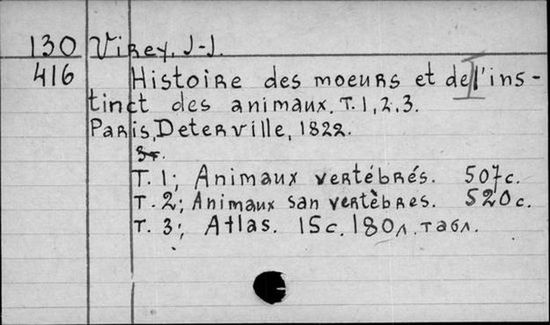 130 Virey, J-J.
416 Histoire des moeurs et de l'ins-
tinct des animaux. T. 1, 2, 3.
Paris, Deterville, 1822.
3т.
T. 1; Animaux vertébrés. 507c.
T. 2; Animaux san vertèbres. 520c.
T. 3; Atlas. 15c. 180л. табл.